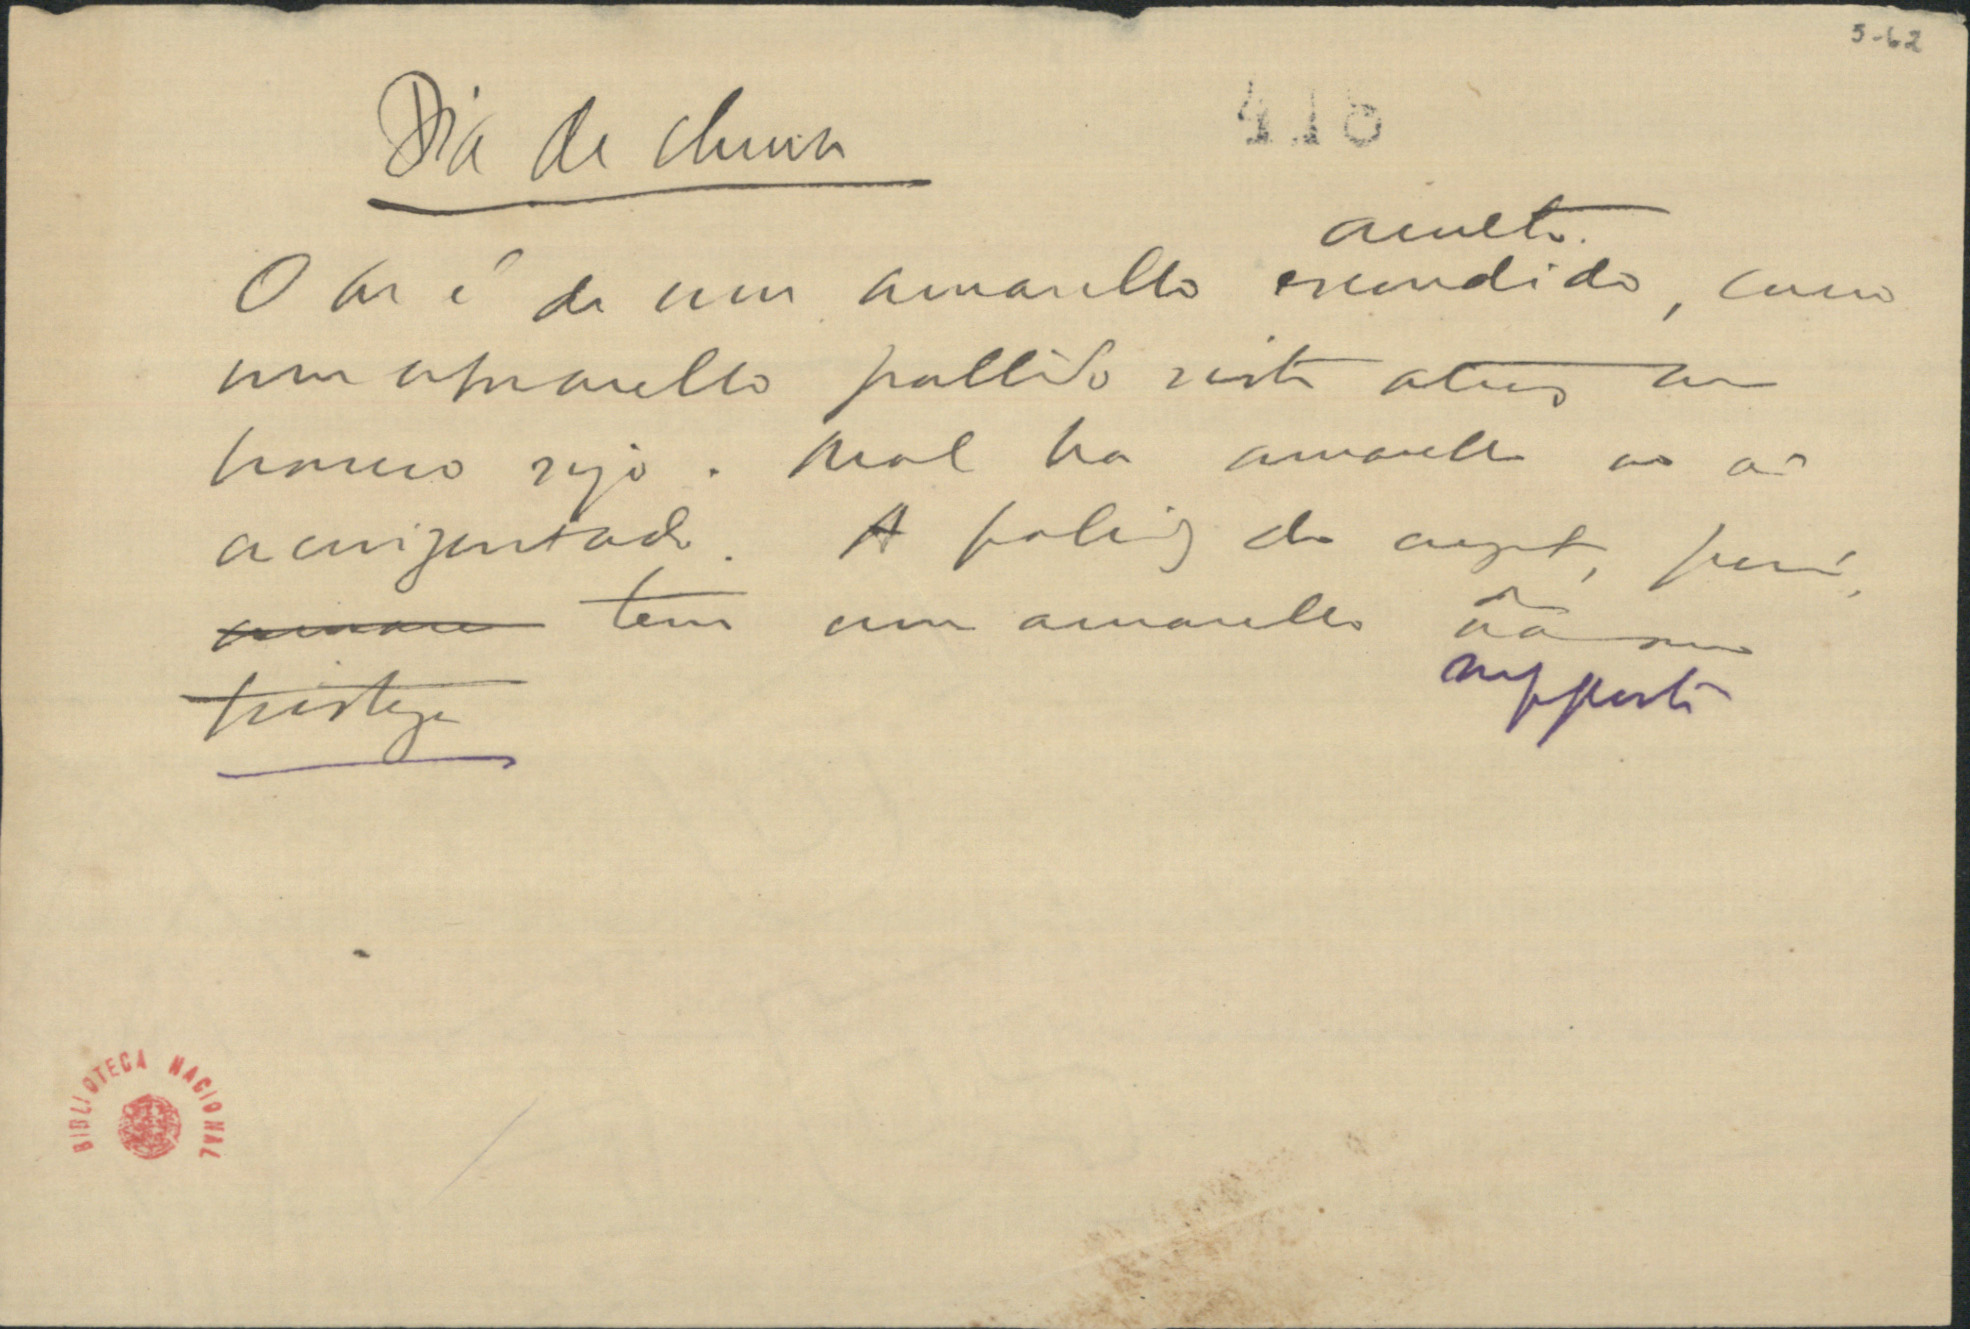 5-62
416
Dia de chuva
occulto.
O ar é de um amarello escondido, como
um amarello pallido visto atraves de um
branco sujo. Mal ha amarello no ar
acinzentado. A palidez do cinzento, porém,
tem um amarello na sua
tristeza
BIBLIOTECA NACIONAL